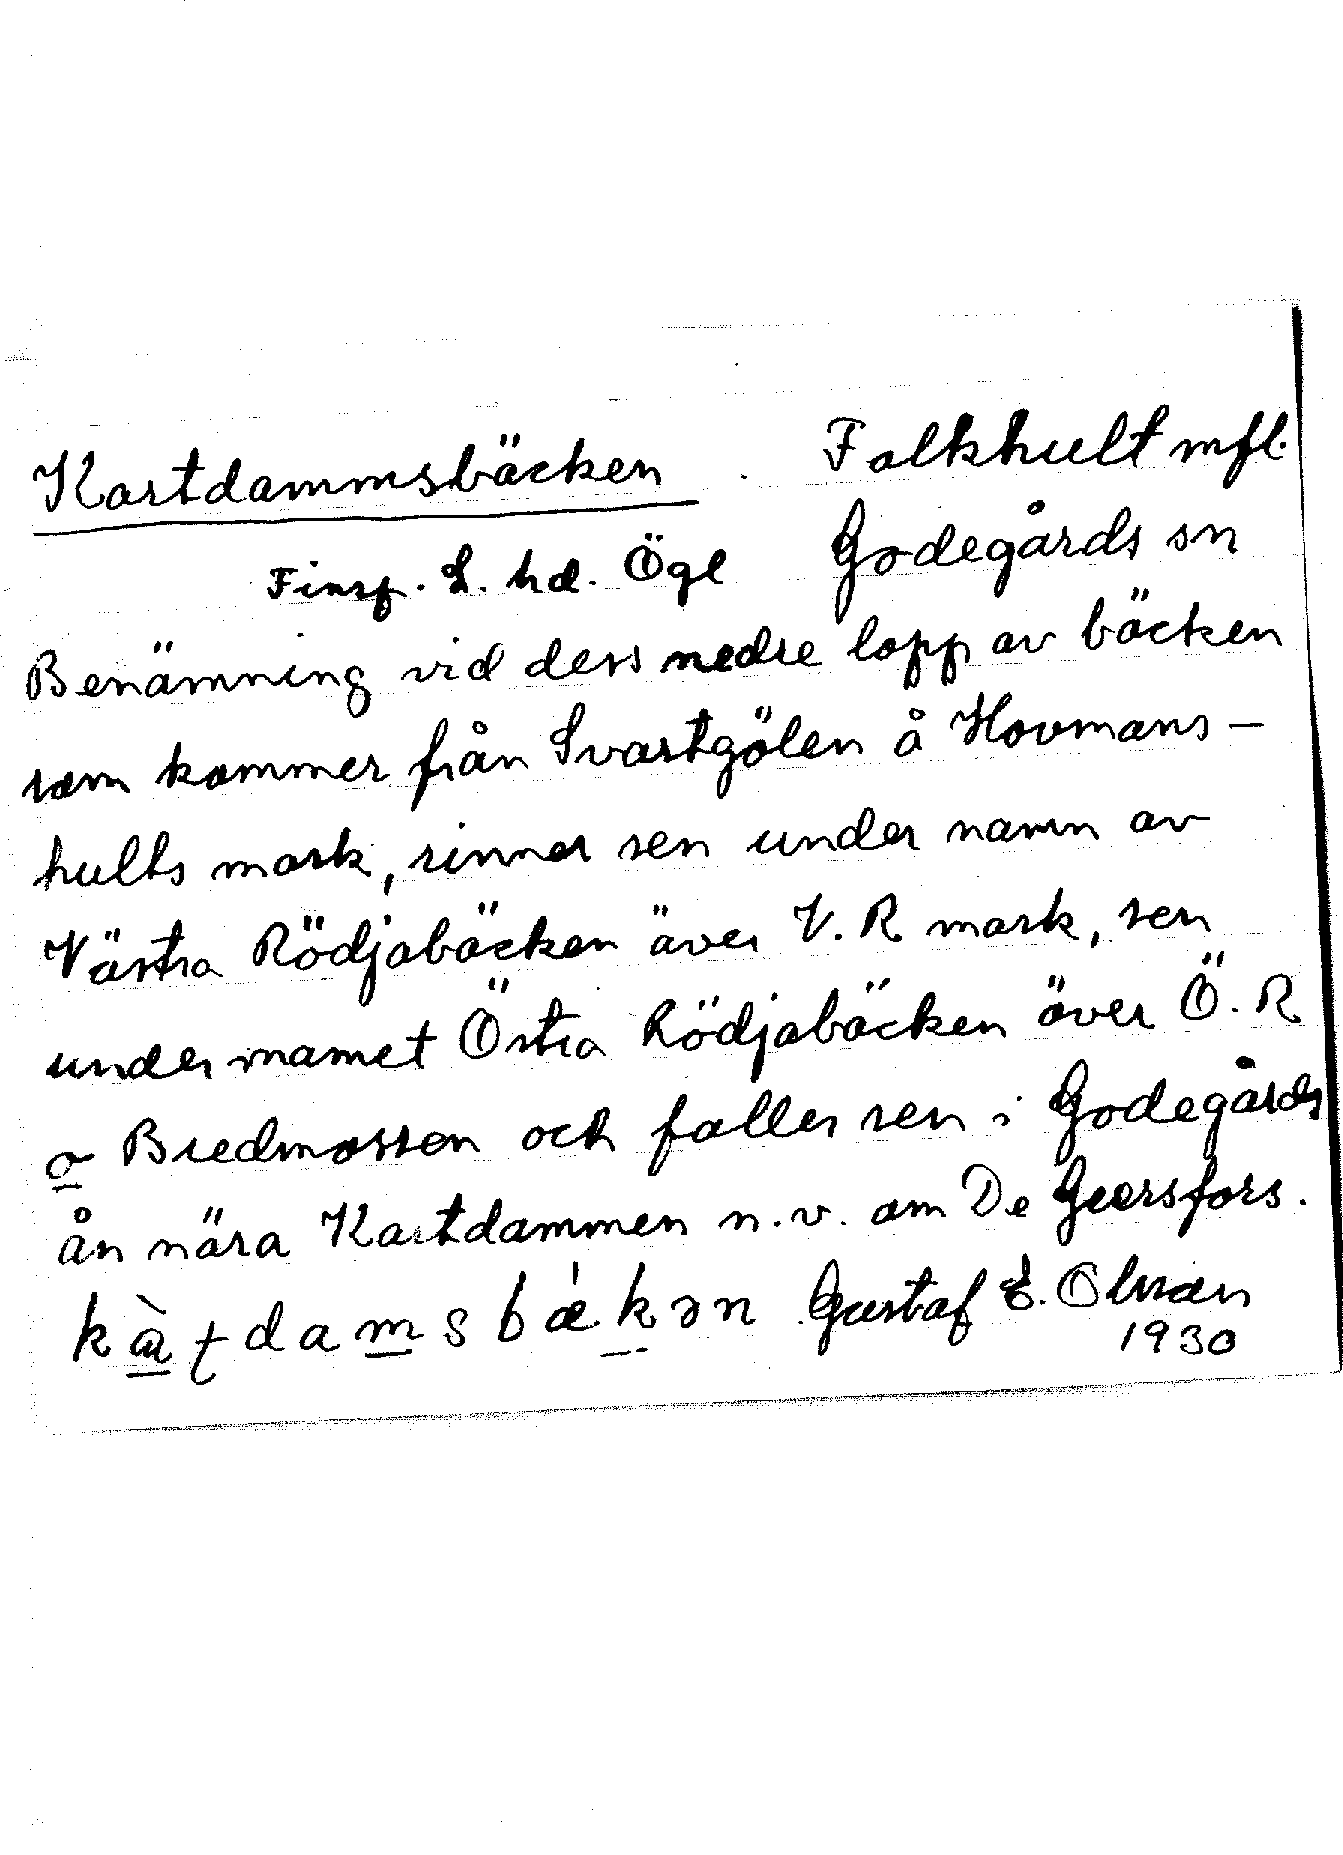 Kartdammsbäcken . Falkhult mfl.
Finsp. L. hd. Ögl Godegårds sn
Benämning vid dess nedre lopp av bäcken
som kommer från Svartgölen å Hovmans-
hults mark, rinner sen under namn av
Västra Rödjabäcken över V. R mark, sen
under namet Östra Rödjabäcken över Ö. R
o Bredmossen och faller sen i Godegårds
ån nära Kartdammen n.v. om De Geersfors.
Gustaf E. Olson
1930